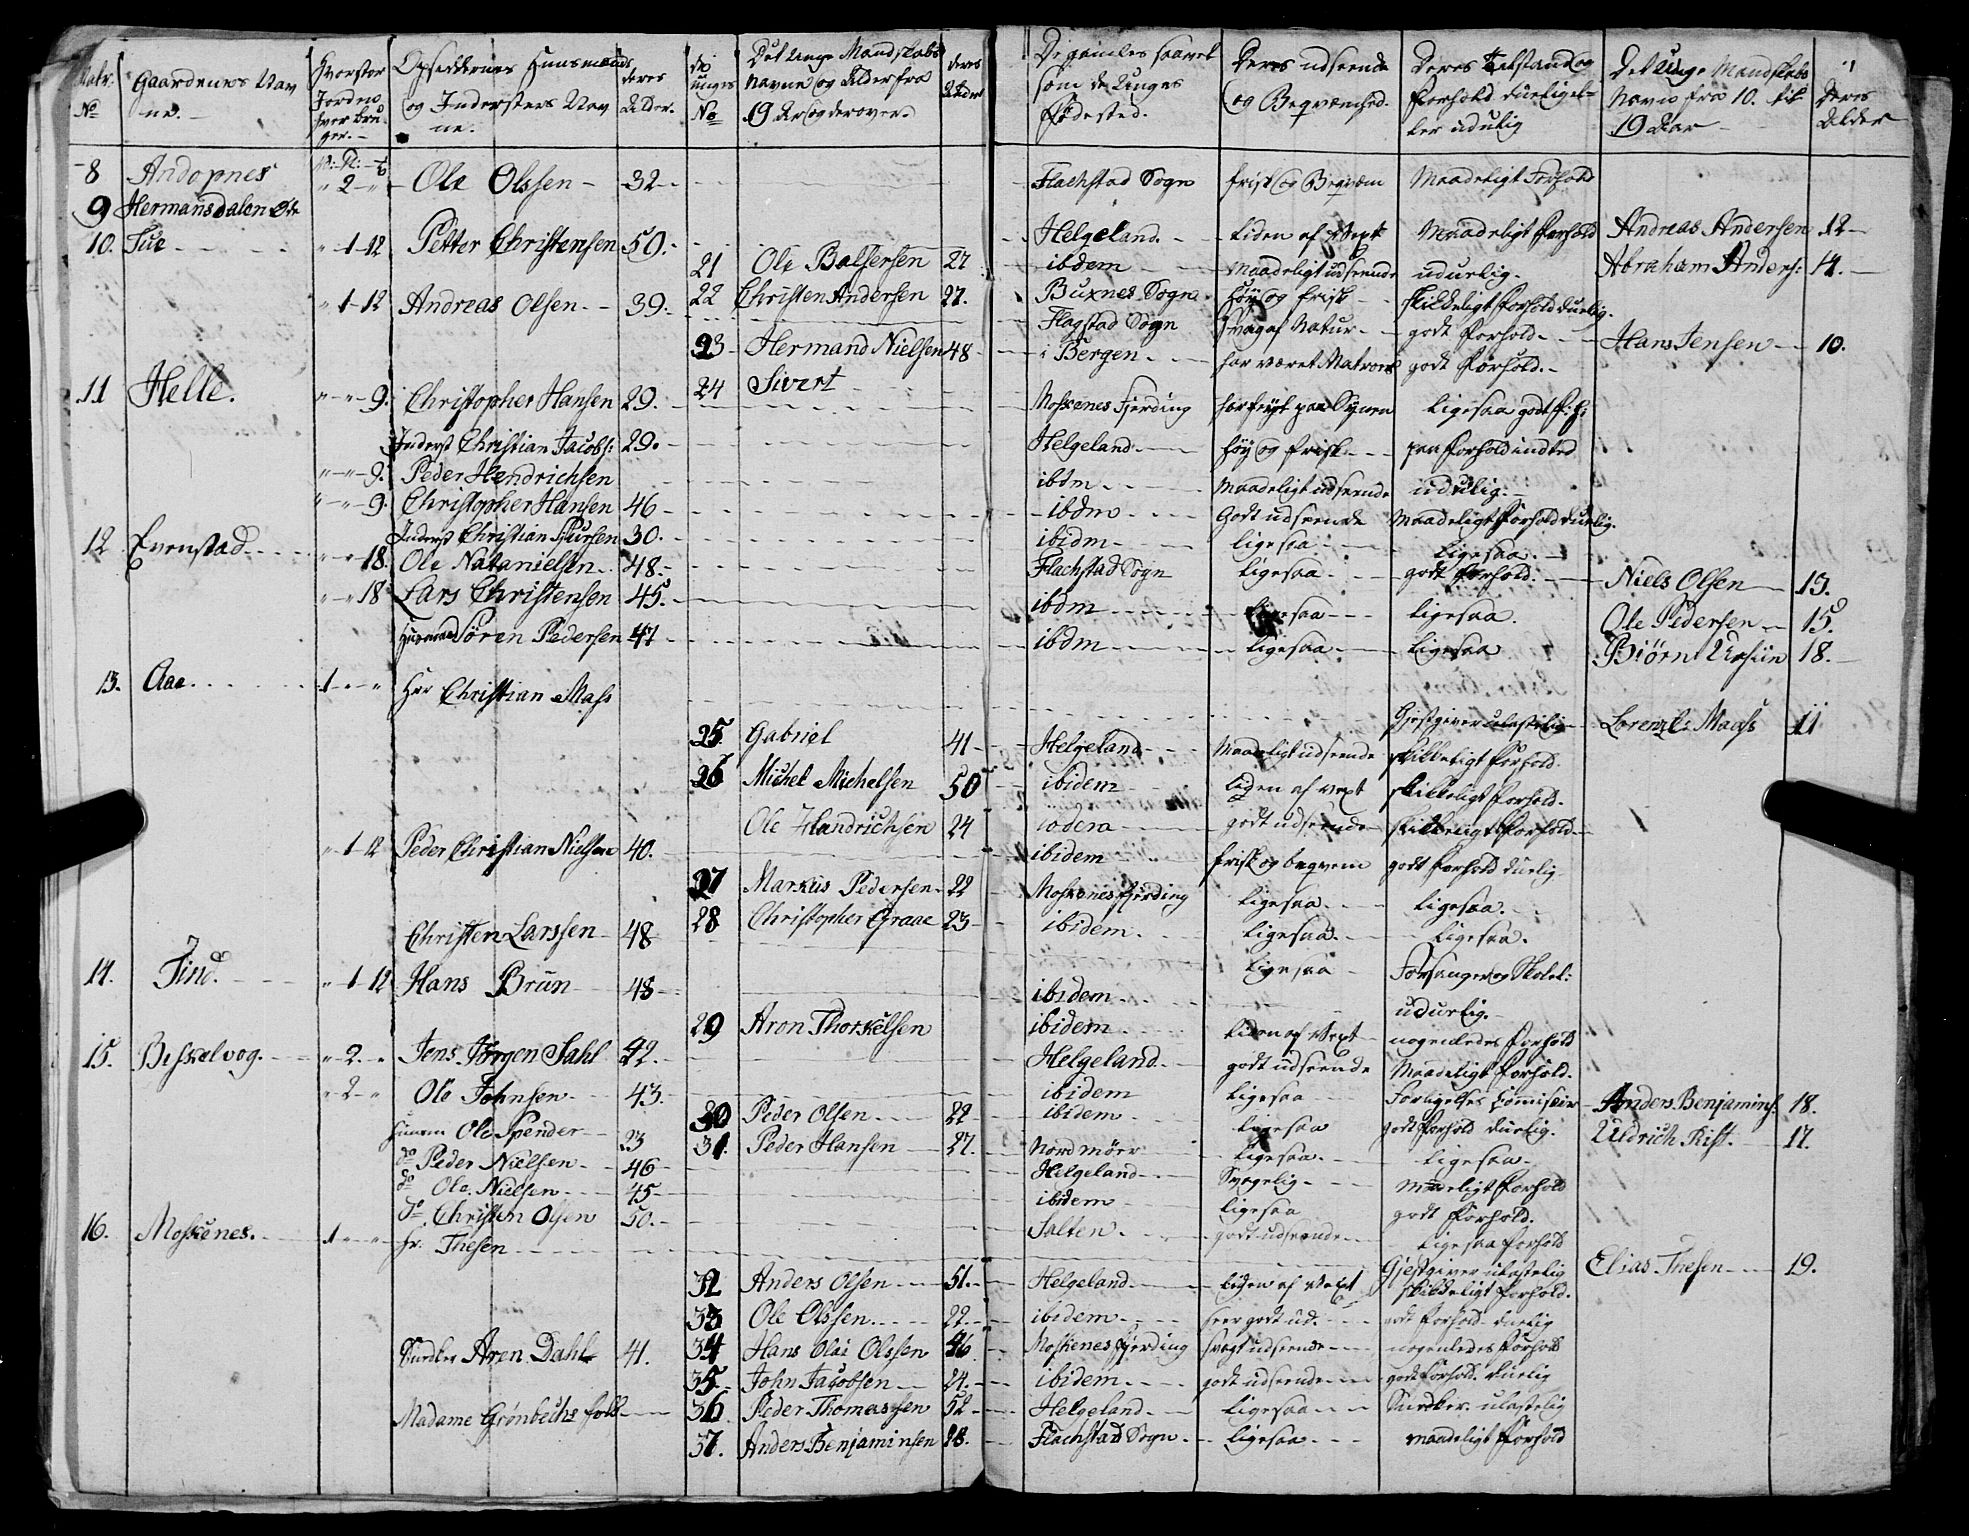 Matr. No
Gaardenes Navne.
Hvor stor Jorden hver Bruger.
Opsidernes Huusmænds og Inderstes Navne.
Deres Alder.
De unges No
Det Unge Mandskabs Navne og Alder fra 19 Aar og derover.
Deres Alder
De gamles saavel som de Unges Fødested.
Deres udseende og Beqvemhed.
Deres Tilstand og Forhold duelig eller uduelig
Det Unge Mandskabs Navne fra 10 til 19 Aar
Deres Alder
8 Andopnes " 2 " Ole Olssen 32 Flachstad Sogn frisk og Beqvem Maadeligt Forhold
9 Hermansdalen Øde
10. Tue " 1 12 Petter Christensen 50. Helgeland Liden af Vext Maadeligt Forhold Andreas Andersen 12
21 Ole Baltsersen 27 ibdem Maadeligt udseende uduelig. Abraham Anders: 14.
" 1 12 Andreas Olsen 39. 22 Christen Andersen 27. Buxnes Sogn høy og frisk skikkeligt forhold duelig.
Flagstad Sogn svag af Natur godt Forhold
23 Hermand Nielsen 48 i Bergen har været Matros godt Forhold. Hans Jensen 10.
11 Helle. 24 Sivert
" " 9. Christopher Hansen 29. Moskenes Fjerding har feyl paa Synen Ligesaa godt F:
Inderst Christian Jacobs: 29. Helgeland høy og frisk
" " 9. Peder Hendrichsen ibdm Maadeligt udseende uduelig.
" " 9. Christopher Hansen 46 ibdm Godt udseende Maadeligt Forhold duelig.
Inderst Christian 30. ibidm Ligesaa Ligesaa.
12 Evenstad " " 18. Ole Natanielsen 48. Flachstad Sogn Ligesaa godt forhold. Niels Olsen 13.
" " 18 Lars Christensen 45. ibdm Ligesaa Ligesaa. Ole Pedersen 15.
Huusmand Søren Pedersen 47 ibdm Ligesaa Ligesaa Biørn Ursiin 18.
13. Aae. 1 " " Herr Christian Mass
Gjestgiver Lorentz Maass 11
25 Gabriel 41 Helgeland Maadeligt udseende skikkeligt Forhold.
26 Michel Michelsen 50 ibidem Liden af vext skikkeligt Forhold.
Ole Handrichsen 24 godt udseende skikkeligt Forhold
" 1 12 Peder Christian Nielsen 40. ibidem frisk og beqvem godt Forhold duelig
27 Markus Pedersen 22 Moskenes fjerding Ligesaa Ligesaa.
28 Christopher Graae 23 ibidem. Ligesaa Ligesaa.
Christen Larssen 48
14. Tind. " 1 12 Hans Brun 48 ibidem Ligesaa Forsanger og Skolel:
29 Aron Thorkelsen ibidem uduelig.
15. Besselvog. " 2 " Jens Jørgen Sahl 42. Helgeland Liden af Vext nogenledes Forhold
" 2 " Ole Johnsen 43. ibidem godt udseende Maadeligt Forhold.
30 Peder Olsen 22 ibidem Ligesaa Forligelses Comissair Anders Benjamins. 18.
Huusm Ole Spender 23 31. Peder Hansen 27. Nordmøer Ligesaa godt Forhold duelig. Uldrich Rist. 17.
do Peder Nielsen 46 Helgeland Ligesaa. Ligesaa
do Ole Nielsen 45 ibidem Svagelig Maadeligt Forhold
do Christen Olsen 50. Salten. Ligesaa godt Forhold.
16. Moskenes. 1 " " Hr. Thesen godt udseende Ligesaa Forhold
Gjestgiver Elias Thesen 19.
32 Anders Olsen 51. Helgeland Liden af Vext skikkeligt Forhold.
33 Ole Olssen 22. ibidem seer godt ud. godt Forhold duelig
Aren Dahl 41. 34 Hans Olai Olssen 46 Moskenes fjerding svagt udseende nogenledes Forhold
35 John Jacobsen 24. ibidem godt udseende godt Forhold. duelig
Madame Grønbechs folk 36 Peder Thomassen 52 Helgeland Ligesaa
37. Anders Benjaminsen 28. Flachstad Sogn Ligesaa maadeligt Forhold